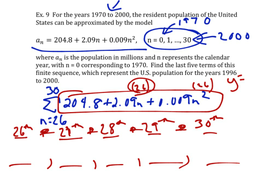 Ex. 9 For the years 1970 to 2000, the resident population of the United
States can be approximated by the model
1970
aₙ = 204.8 + 2.09n + 0.009n², n = 0, 1, ..., 30
2000
where aₙ is the population in millions and n represents the calendar
year, with n = 0 corresponding to 1970. Find the last five terms of this
finite sequence, which represent the U.S. population for the years 1996
to 2000.
30 (26) (26) y=
Σ 204.8+2.09n+0.009n²
n=26
26ᵗʰ 27ᵗʰ 28ᵗʰ 29ᵗʰ 30ᵗʰ
__, __, __, __, __